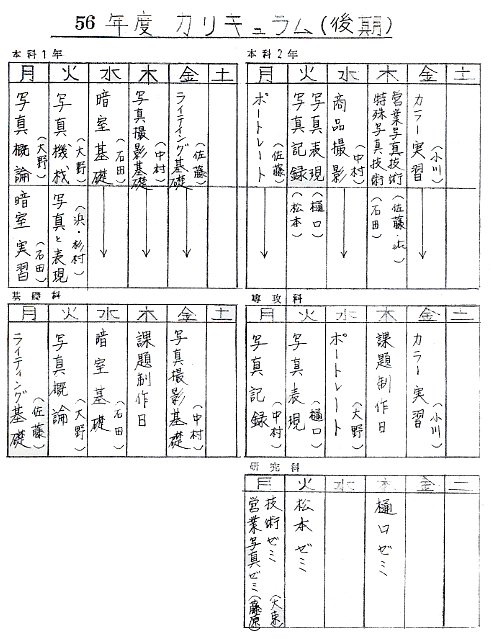 56年度 カリキュラム(後期)
本科1年
月 火 水 木 金 土
写真概論(大野)
暗室実習(石田)
写真機材(大野)
写真と表現(浜・杉村)
暗室基礎(石田)
写真撮影基礎(中村)
ライティング基礎(佐藤)
本科2年
月 火 水 木 金 土
ポートレート(佐藤)
写真表現(樋口)
写真記録(松本)
商品撮影(中村)
営業写真技術(佐藤・他)
特殊写真技術(石田)
カラー実習(小川)
基礎科
月 火 水 木 金 土
ライティング基礎(佐藤)
写真概論(大野)
暗室基礎(石田)
課題制作日
写真撮影基礎(中村)
専攻科
月 火 水 木 金 土
写真記録(中村)
写真表現(樋口)
ポートレート(大野)
課題制作日
カラー実習(小川)
研究科
月 火 水 木 金 土
技術ゼミ(大東)
営業写真ゼミ(藤原)
松本ゼミ
樋口ゼミ